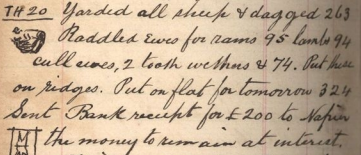 TH 20 Yarded all sheep & dagged 263
Raddled Ewes for rams 95 lambs 94
cull ewes, 2 tooth wethers & 74. Put here
on ridges. Put on flat for tomorrow 324
Sent Bank receipt for £200 to Napier
the money to remain at interest.